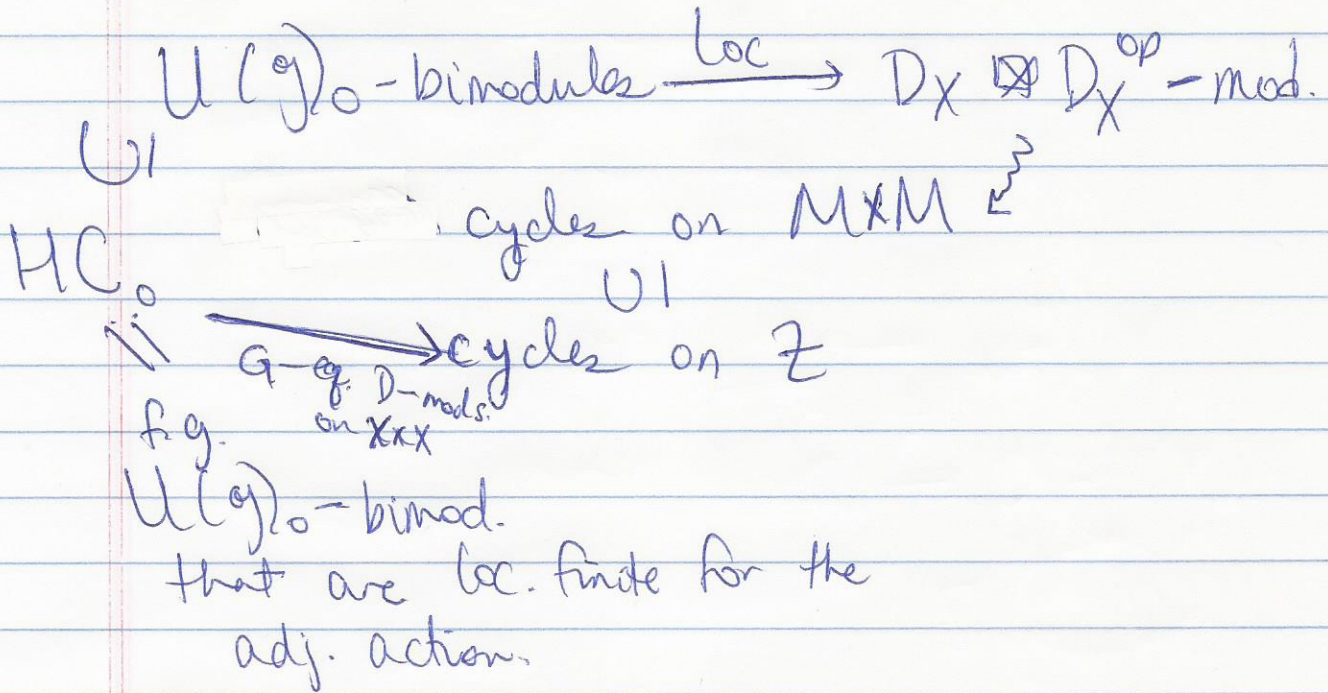 U(g)₀-bimodules loc → D_X ⊠ D_X^op - mod.
∪|
cycles on M×M
HC₀ ∪|
→ cycles on Z
G-eq. D-mods.
on X×X
f.g.
U(g)₀-bimod.
that are loc. finite for the
adj. action.